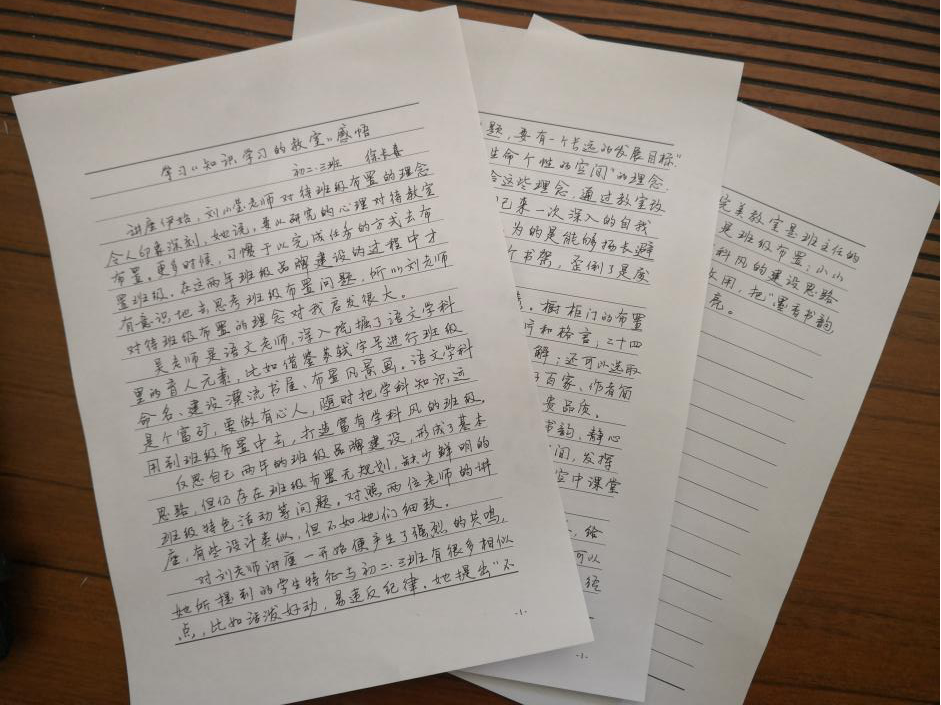 学习《知识学习的教室》感悟
初二·三班 徐长春
讲座伊始，刘小莹老师对待班级布置的理念
令人印象深刻，她说，要以研究的心理对待教室
布置。更多时候，习惯于以完成任务的方式去布
置班级。在这两年班级品牌建设的过程中才
有意识地去思考班级布置问题，听听刘老师
对待班级布置的理念对我启发很大。
吴老师是语文老师，深入挖掘了语文学科
里的育人元素，比如借鉴 字号进行班级
命名、建设漂流书屋、布置风景画。语文学科
是个富矿，要做有心人，随时把学科知识运
用到班级布置中去，打造富有学科风的班级。
反思自己两年的班级品牌建设，形成了基本
思路，但仍存在班级布置无规划、缺少鲜明的
班级特色活动等问题。对照两位老师的讲
座，有些设计类似，但不如她们细致。
对刘老师讲座一开始便产生了强烈的共鸣，
她所提到的学生特征与初二·三班有很多相似
点，比如活泼好动，易违反纪律。她提出“不
-1-
题，要有一个长远的发展目标”
生命个性的空间”的理念
合这些理念，通过教室改
己来一次深入的自我
为的是能够扬长避
个书架，歪倒了是废
橱柜门的布置
片和格言；二十四
解；还可以选取
百家、作者简
贵品质。
书韵、静心
间，发挥
空中课堂
，给
可以
经
-1-
完美教室是班主任的
是班级布置；小小
科风的建设思路
改用，把“墨香书韵
亮。